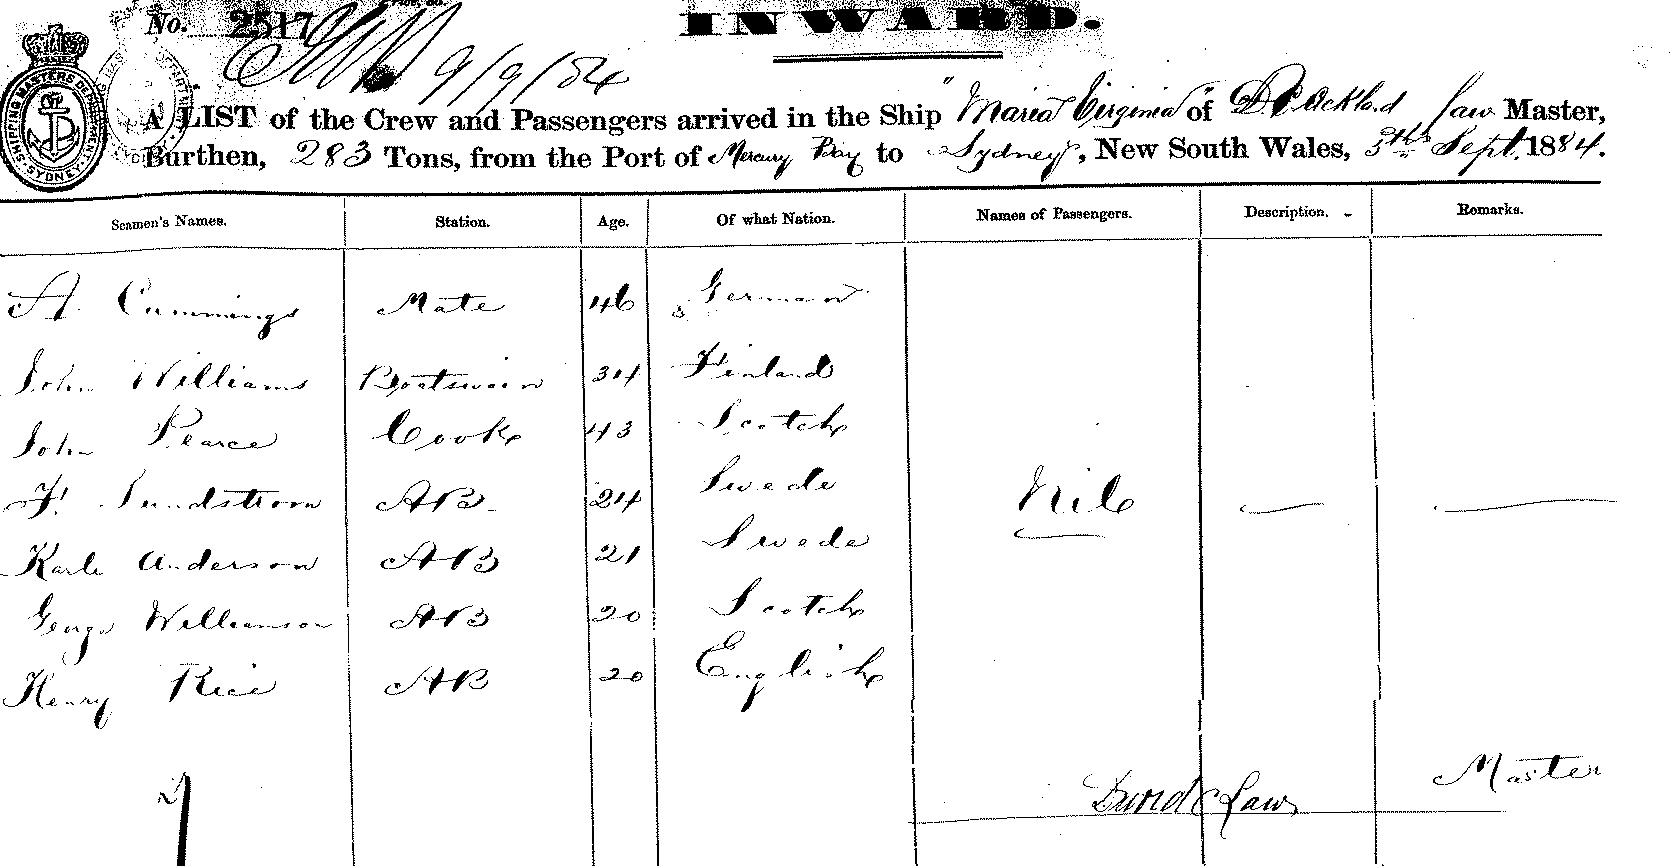 No. 2517
INWARD.
9/9/84
SHIPPING MASTERS DEPARTMENT SYDNEY
A LIST of the Crew and Passengers arrived in the Ship "Maria Virginia" of Law Master,
Burthen, 283 Tons, from the Port of Mercury Bay to Sydney, New South Wales, 5th Sept. 1884.
Seamen's Names. Station. Age. Of what Nation. Names of Passengers. Description. Remarks.
A. Cummings Mate 46 German
John Williams Boatswain 34 Finland
John Pearce Cook 43 Scotch
F. Sundstrom AB 24 Swede Nil — —
Karle Anderson AB 21 Swede
George Williamson AB 20 Scotch
Henry Rice AB 20 English
Master
David Law